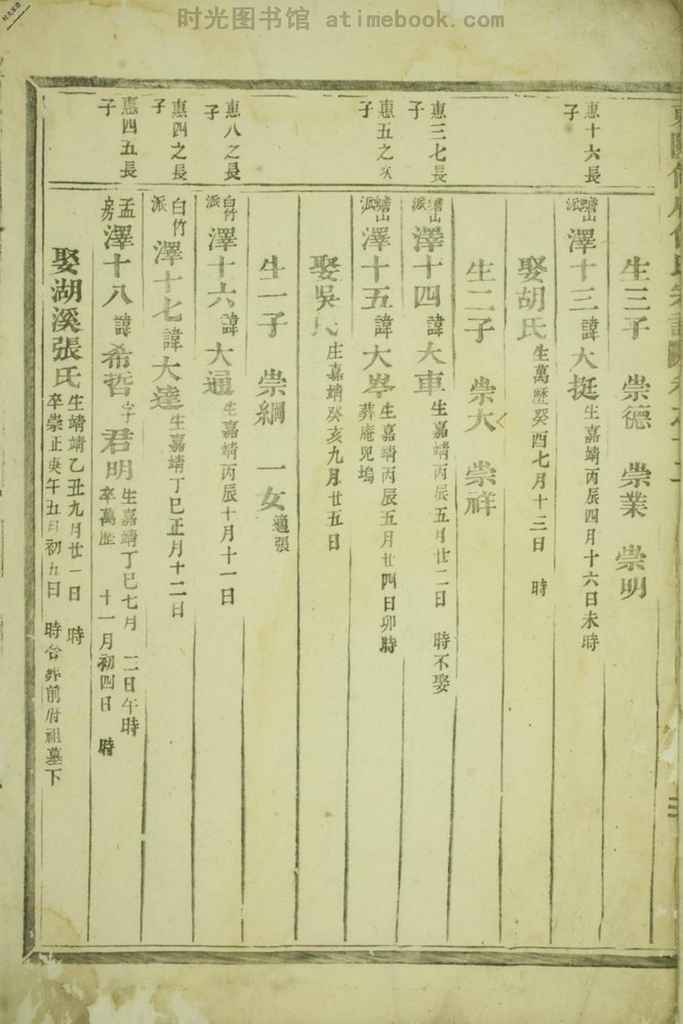 时光图书馆 atimebook.com
生三子 崇德 崇業 崇明
惠十六長子
派 澤十三諱大挺 生嘉靖丙辰四月十六日未時
娶胡氏 生萬歷癸酉七月十三日 時
生二子 崇大 崇祥
惠三七長子
山派 澤十四諱大車 生嘉靖丙辰五月廿二日 時不娶
惠五之次子
山派 澤十五諱大峯 生嘉靖丙辰五月廿四日卯時
葬庵兒塢
娶吳氏 生嘉靖癸亥九月廿五日
生一子 崇綱 一女 適張
惠八之長子
白竹派 澤十六諱大通 生嘉靖丙辰十月十一日
惠四之長子
白竹派 澤十七諱大達 生嘉靖丁巳正月十二日
惠四五長子
孟房 澤十八諱希哲 字君明 生嘉靖丁巳七月 二日午時
卒萬歷 十一月初四日 時
娶湖溪張氏 生靖靖乙丑九月廿一日 時
卒崇正庚午五月初九日 時合葬前府祖墓下